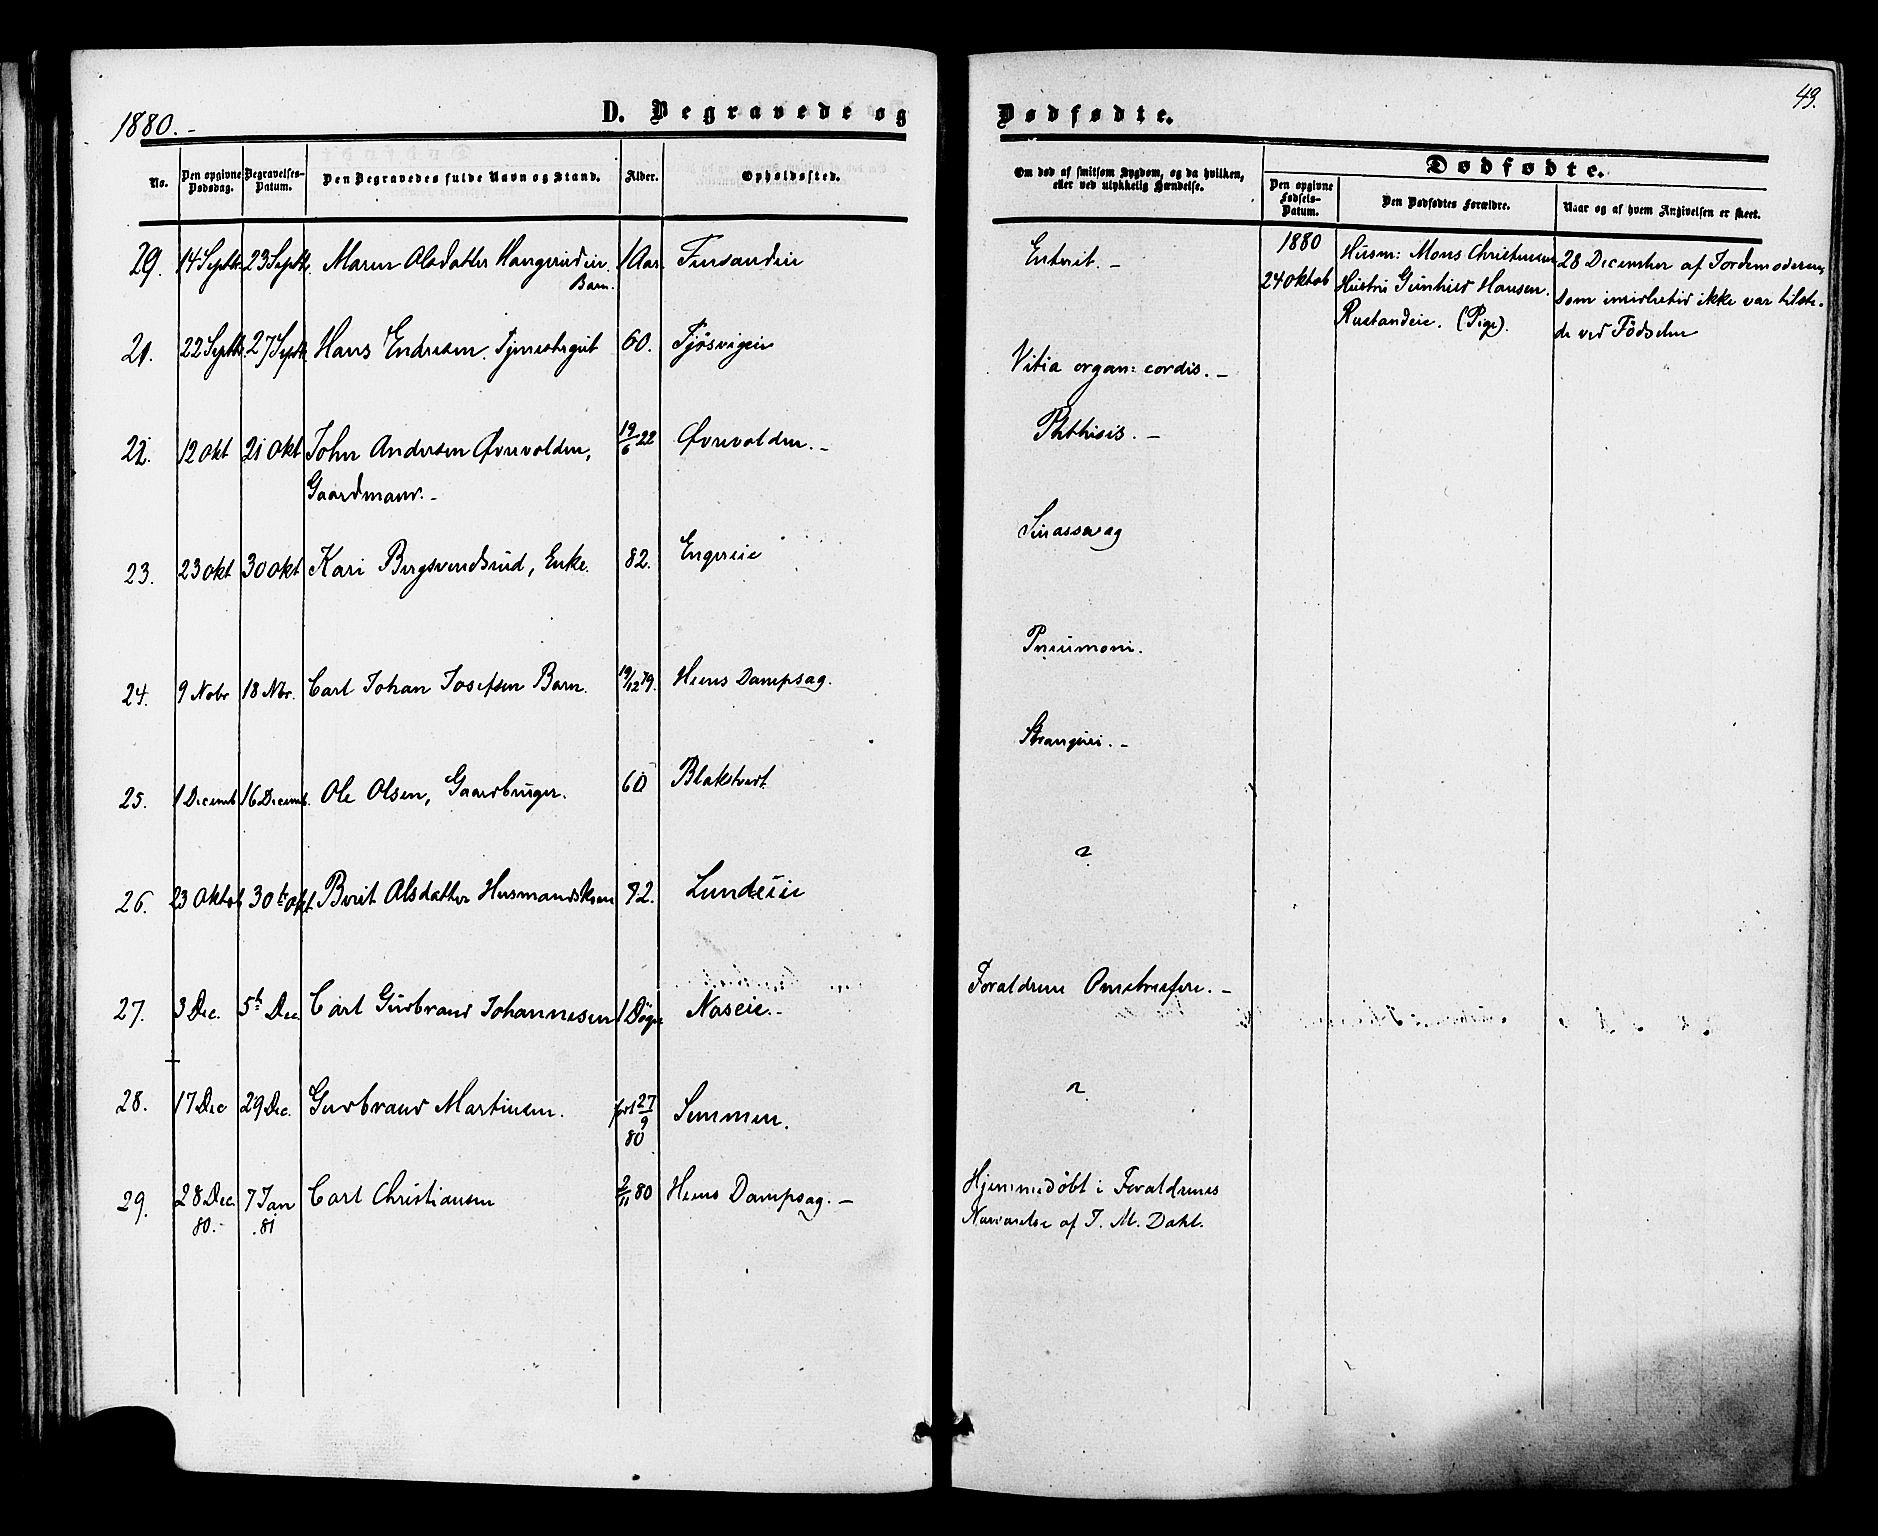 1880.-
D. Begravede og
Dødfødte.
49.
No.
Den opgivne Dødsdag.
Begravelses-Datum.
Den Begravedes fulde Navn og Stand.
Alder.
Opholdssted.
Om død af smitsom Sygdom, og da hvilken,
eller ved ulykkelig Hændelse.
Dødfødte.
Den opgivne Fødsels-Datum.
Den Dødfødtes Forældre.
Naar og af hvem Angivelsen er skeet.
29. 14 Septbr. 23 Septbr. Maren Olsdatter 1 Aar. Finsandeie Entrit.-
Barn.
1880
24 Oktob
Husm: Mons Christensen
Hustru Gunhild Hansen.
Rustandeie. (Pige).
28 December af Jordemoderen,
som imidlertid ikke var tilste-
de ved Fødselen
21. 22 Septbr. 27 Septbr. Hans Endresen. Tjenestegut 60. Tjøsvigeie Vitia organ: cordis.-
22. 12 Okt 21 Okt John Andersen Øvrevolden, 19/6 22 Øvrevolden.- Phthisis.-
Gaardmand.-
23. 23 Okt 30 Okt Kari Bergsvendsrud, Enke. 82. Engereie
24. 9 Nobr 18 Nbr. Carl Johan Josefsen Barn. 19/12 79. Heens Dampsag. Pneumoni.
25. 1 Decemb 16 Decemb. Ole Olsen, Gaardbruger. 60 Blakstvedt
26. 23 Oktob 30te Okt. Berit Olsdatter Husmandskone 82. Lundeie
27. 3 Dec. 5th Dec. Carl Gudbrand Johannesen 1 Døgn Naseie.- Forældrene
28. 17 Dec 29 Dec. Gudbrand Martinsen. født 27/9 80 Semmen.
29. 28 Dec. 80.- 7 Jan .81 Carl Christiansen 2/11 80 Heens Dampsag.- Hjemmedøbt i Forældrenes
Nærværelse af J. M. Dahl.